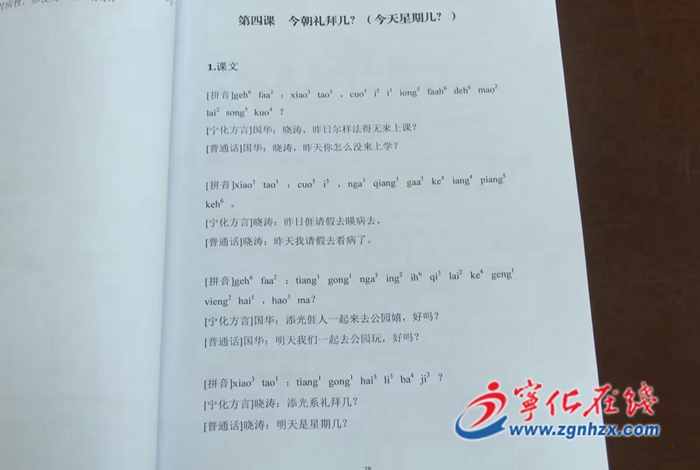 第四课 今朝礼拜几？（今天星期几？）
1.课文
[拼音]geh⁶ faa² ：xiao³ tao¹ ，cuo⁵ i⁵ i¹ iong⁵ faah⁶ deh⁶ mao²
lai² song⁵ kuo⁴ ？
[宁化方言]国华：晓涛，昨日尔样法得无来上课？
[普通话]国华：晓涛，昨天你怎么没来上学？
[拼音]xiao³ tao¹ ：cuo⁵ i⁵ ，nga³ qiang³ gaa³ ke⁴ iang⁴ piang⁵
keh⁶ 。
[宁化方言]晓涛：昨日𠊎请假去暎病去。
[普通话]晓涛：昨天我请假去看病了。
[拼音]geh⁶ faa² ：tiang¹ gong¹ nga³ ing² ih⁶ qi³ lai² ke⁴ geng¹
vieng² hai¹ ，hao³ ma?
[宁化方言]国华：添光𠊎人一起来去公园嬉，好吗?
[普通话]国华：明天我们一起去公园玩，好吗？
[拼音]xiao³ tao¹ ：tiang¹ gong¹ hai⁵ li³ ba⁴ ji³ ？
[宁化方言]晓涛：添光系礼拜几?
[普通话]晓涛：明天是星期几？
寧化在线
www.zgnhzx.com